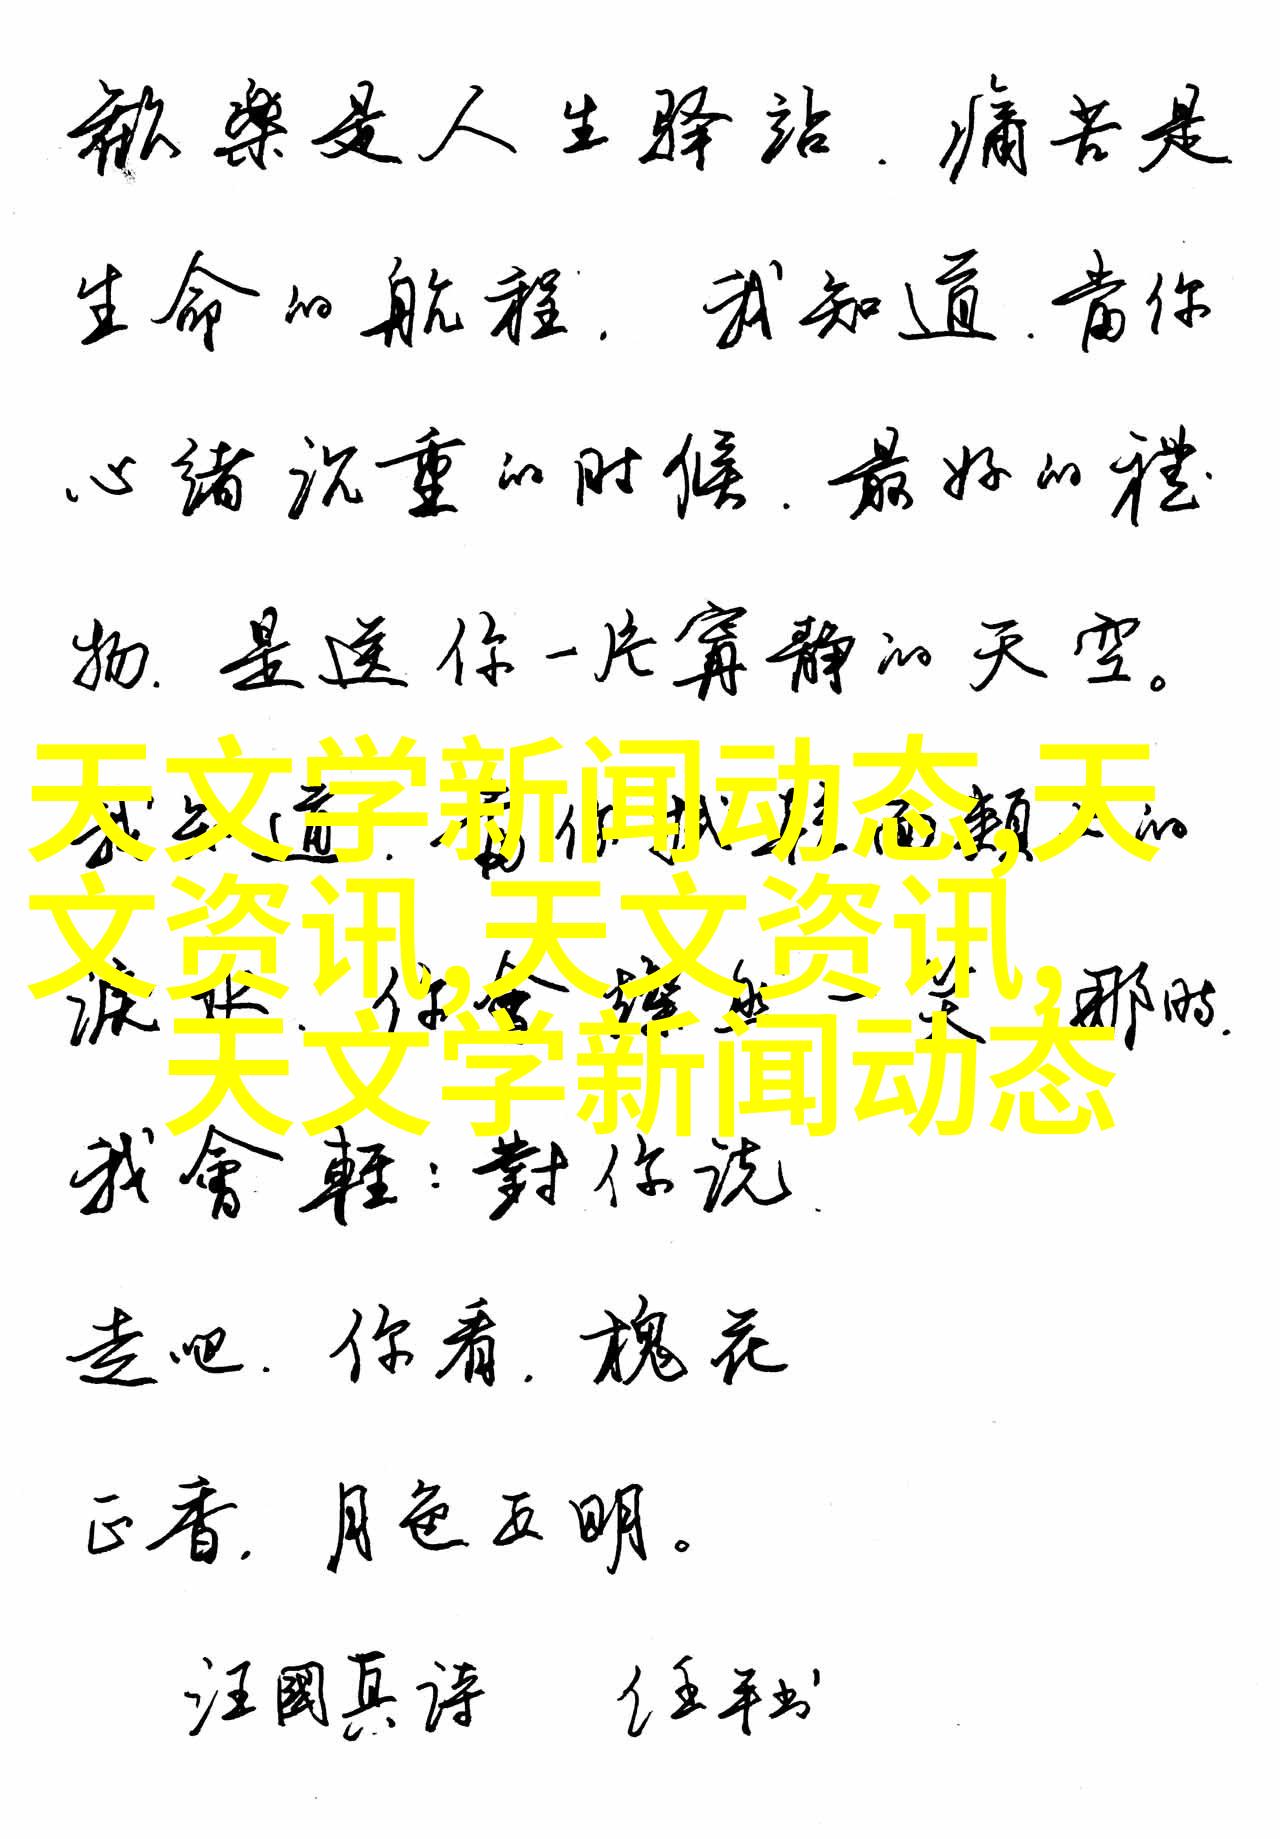 歡樂是人生驿站.痛苦是
生命的航程.我知道.當你
心緒沉重的时候.最好的禮
物.是送你一片寧靜的天空。
天文学新闻动态,天
我知道.當你 面頰上的
文资讯,天文资讯,
淚水.你會 然一笑.那時.
天文学新闻动态
我會輕:對你说.
走吧.你看.槐花
正香.月色正明。
汪國真诗 任平书